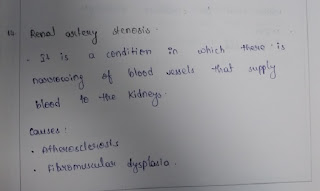 Renal artery stenosis.
• It is a condition in which there is
narrowing of blood vessels that supply
blood to the kidneys.
Causes:
• Atherosclerosis
• Fibromuscular dysplasia.